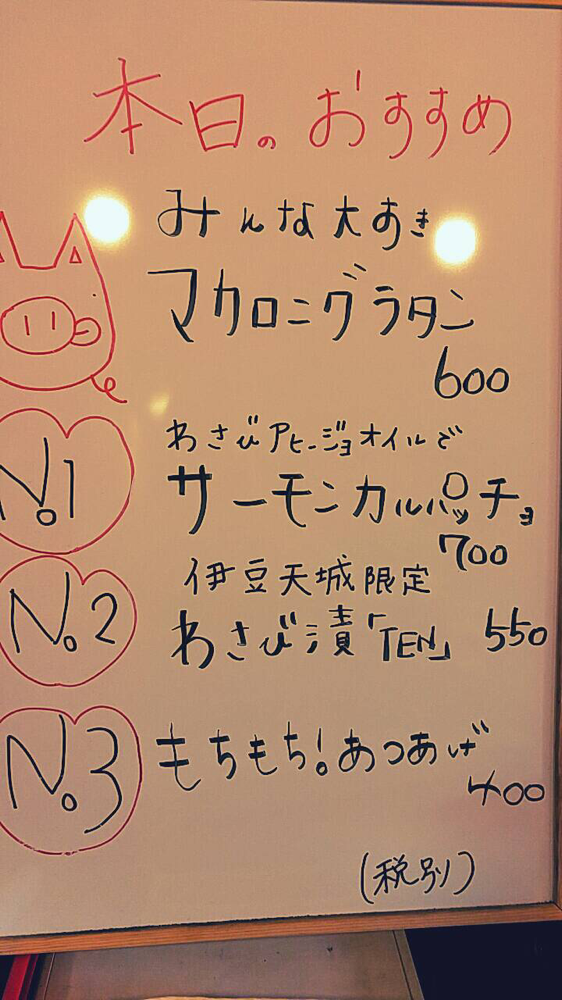 本日のおすすめ
みんな大すき
マカロニグラタン
600
No.1
わさびアヒージョオイルで
サーモンカルパッチョ
700
No.2
伊豆天城限定
わさび漬「TEN」 550
No.3
もちもち!あつあげ
400
(税別)